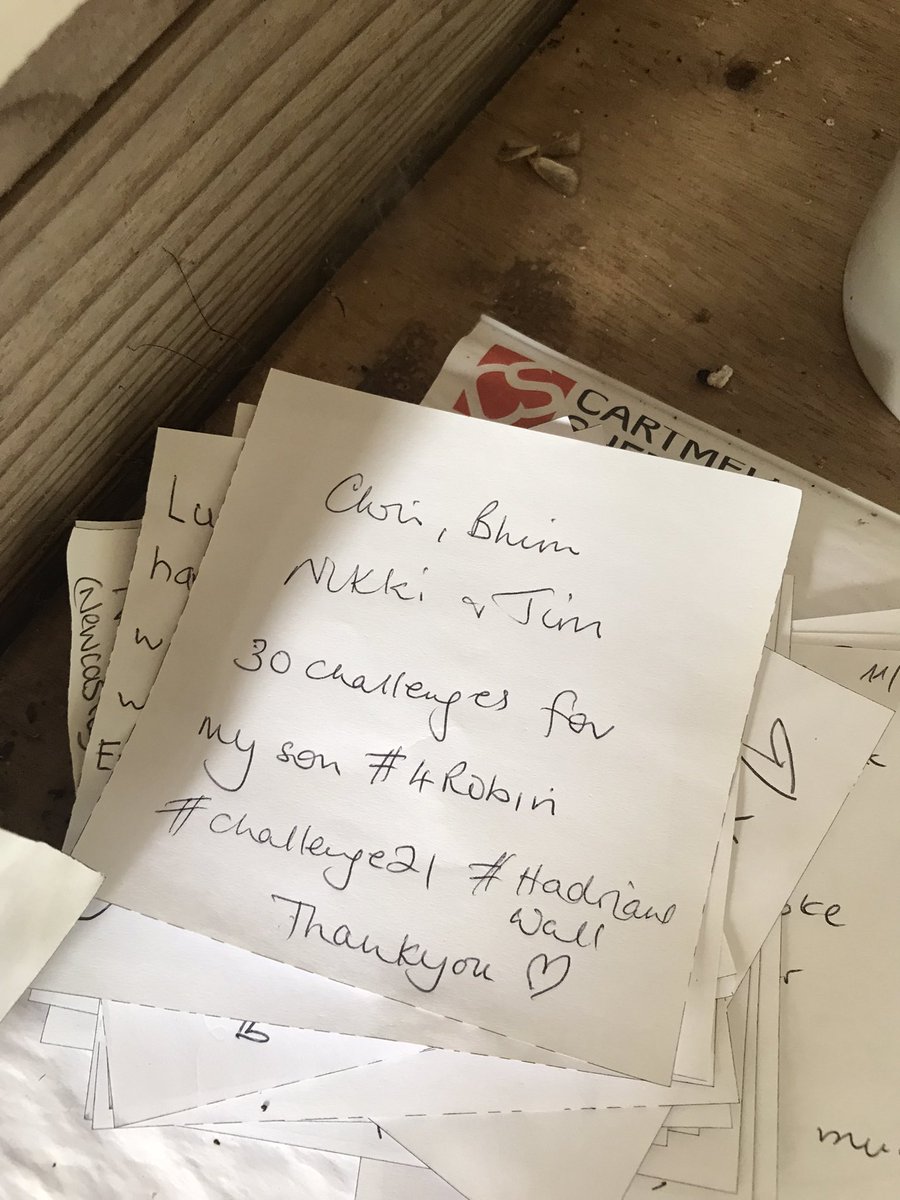 CS CARTMELL
Chris, Bhim
Nikki & Jim
30 challenges for
my son #4Robin
#challenge21 #Hadrians
Wall
Thankyou ♡
Lu
ha
w
w
E
(Newcas
oke
r
mu